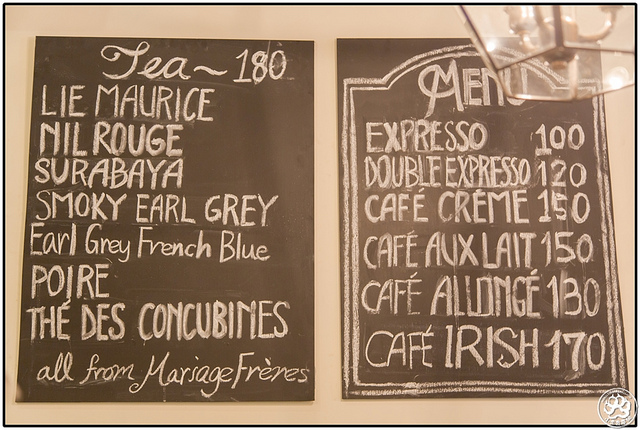 Tea ~ 180
LIE MAURICE
NIL ROUGE
SURABAYA
SMOKY EARL GREY
Earl Grey French Blue
POIRE
THÉ DES CONCUBINES
all from Mariage Frères
MENU
EXPRESSO 100
DOUBLE EXPRESSO 120
CAFÉ CRÉME 150
CAFÉ AUX LAIT 150
CAFÉ ALLONGÉ 130
CAFÉ IRISH 170